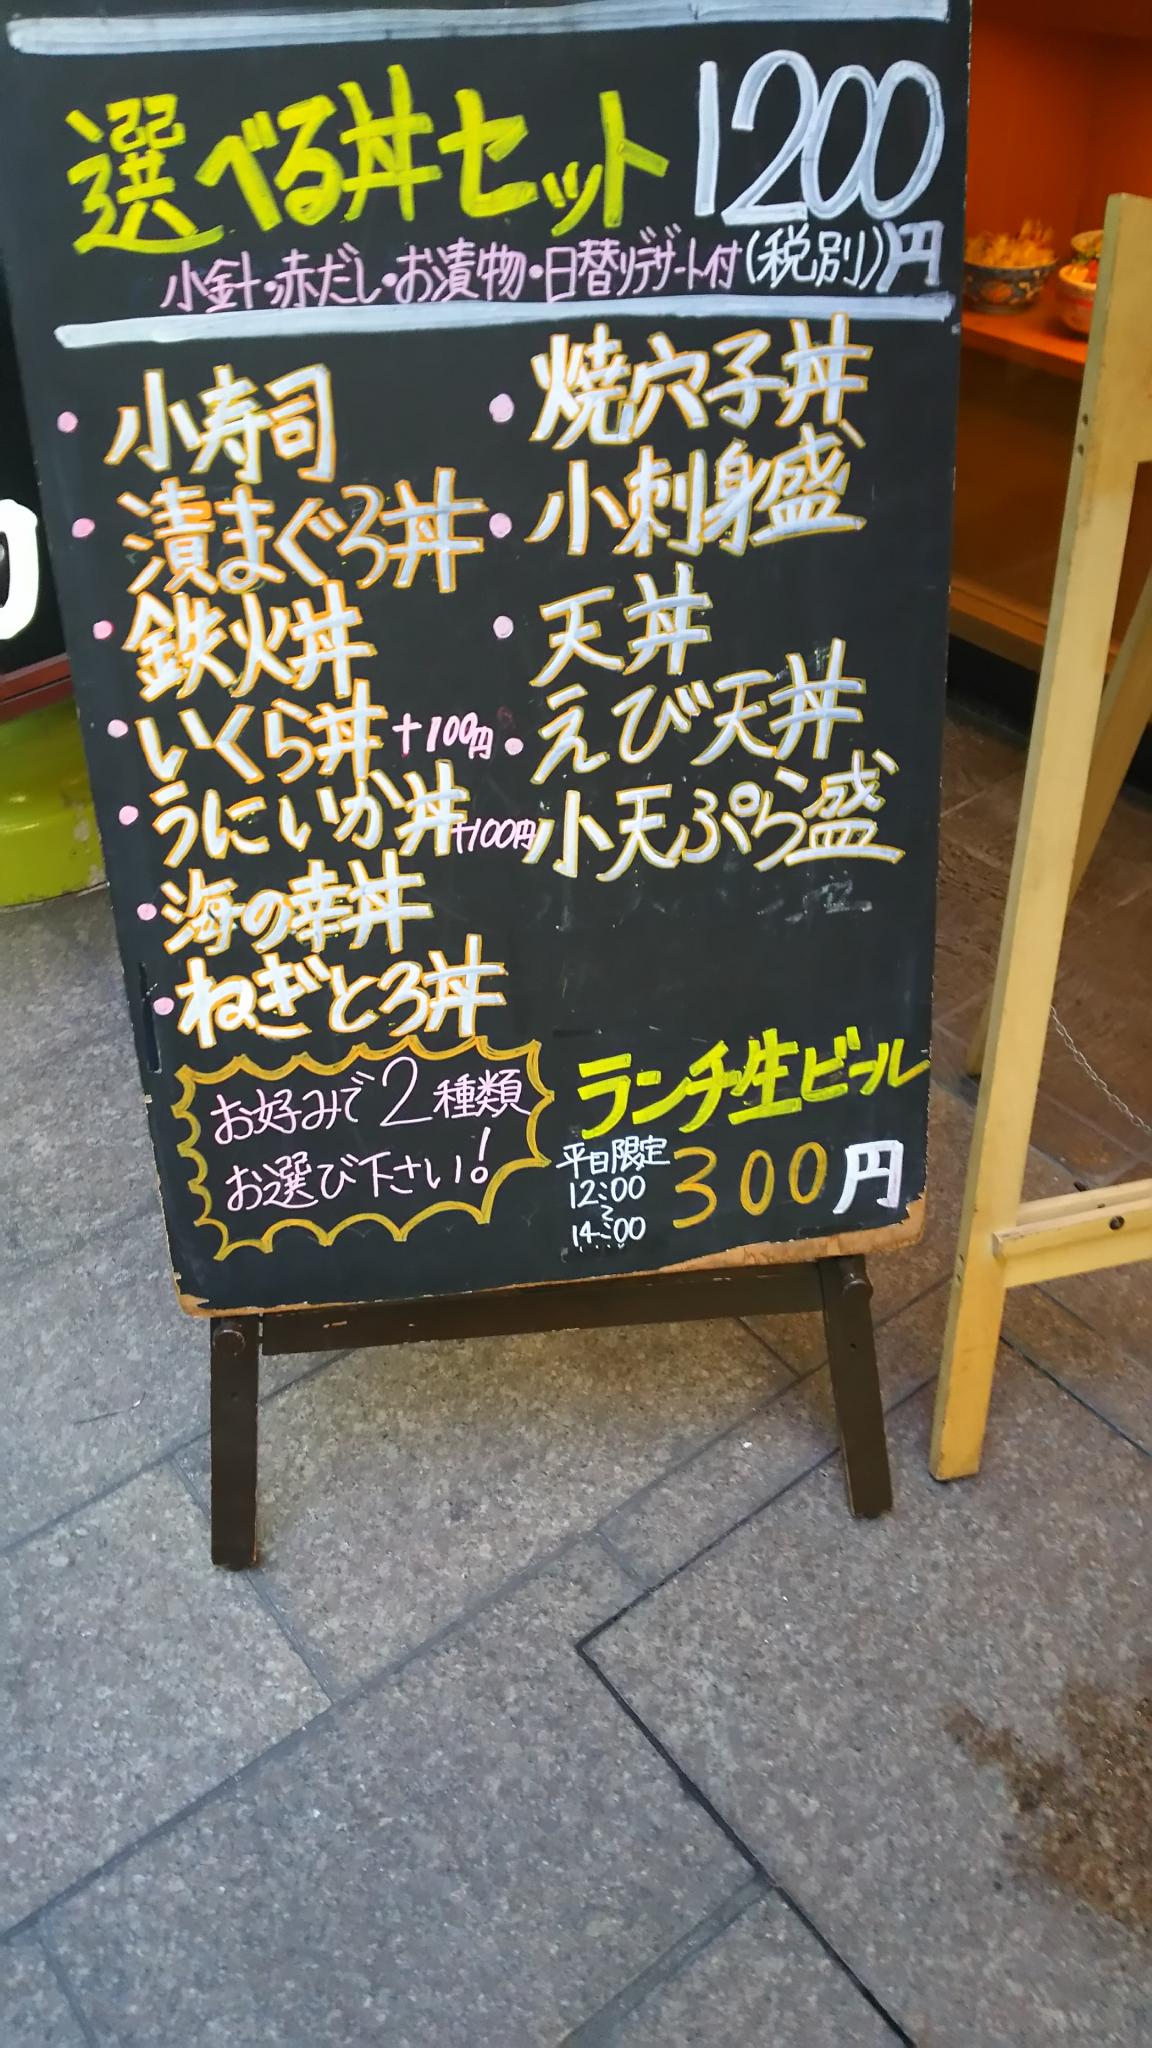 選べる丼セット 1200円
小針・赤だし・お漬物・日替りデザート付(税別)
・小寿司
・漬まぐろ丼
・鉄火丼
・いくら丼 +100円
・うにいか丼 +100円
・海の幸丼
・ねぎとろ丼
・焼穴子丼
・小刺身盛
・天丼
・えび天丼
小天ぷら盛
お好みで2種類
お選び下さい!
ランチ生ビール
平日限定
12:00
~
14:00
300円